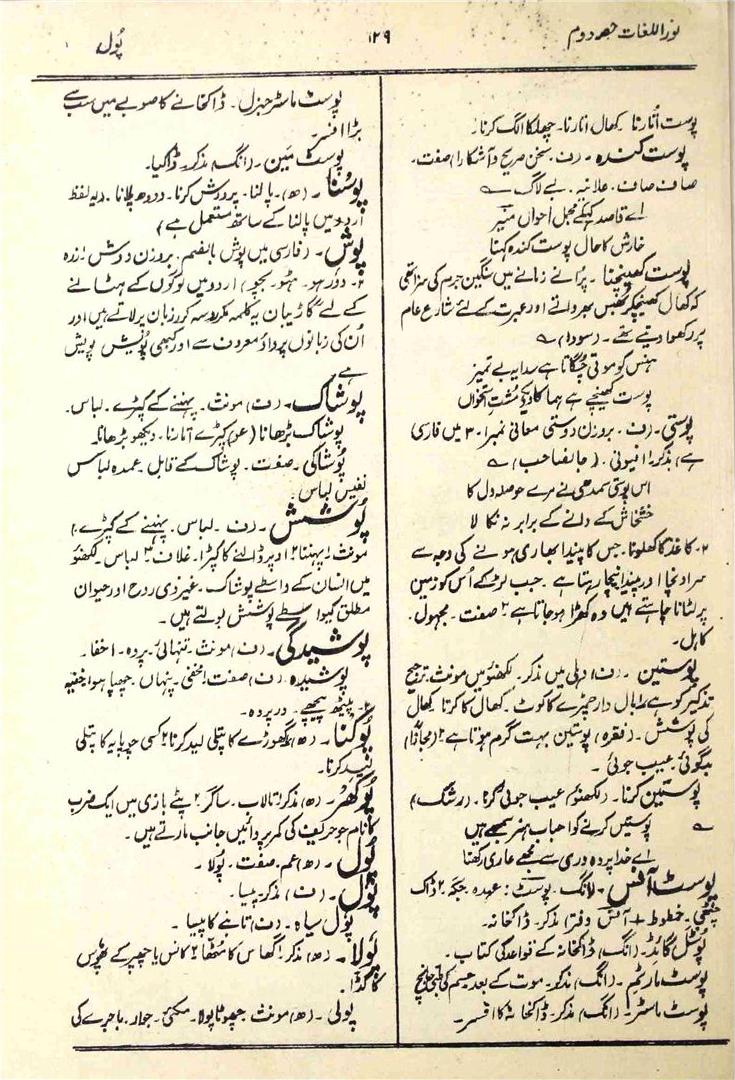 نوراللغات حصہ دوم
۱۲۹
پُول
پوست اُتارنا ۔ کھال اتارنا۔ چھلکا الگ کرنا۔
پوست کندہ ۔ (ف۔ سخن صریح و آشکارا) صفت۔
صاف صاف۔ علانیہ۔ بے لاگ ؎
اے قاصد کہیو مجمل احوال منیر
خارش کا حال پوست کندہ کہنا
پوست کھینچنا ۔ پُرانے زمانے میں سنگین جرم کی سزا تھی
کہ کھال کھینچکر بھس بھرواتے اور عبرت کے لئے شارع عام
پر رکھوا دیتے تھے۔ (سودا) ؎
ہنس کو موتی چُگاتا ہے سدا یہ بے تمیز
پوست کھینچے ہے ہما کا دیکے مشت استخواں
پوستی۔ (ف۔ بروزن دوستی معانی نمبر۱۔ ۳ میں فارسی
ہے) مذکر۔ ۱ افیونی۔ (جانصاحب) ؎
اس پوستی سمدھی نے مرے حوصلہ دل کا
خشخاش کے دانے کے برابر نہ نکالا
۲۔ کاغذ کا کھلونا۔ جس کا پیندا بھاری ہونے کی وجہ سے
سر اونچا اور پیندا نیچا رہتا ہے۔ جب لڑکے اُس کو زمین
پر لٹانا چاہتے ہیں وہ کھڑا ہو جاتا ہے ۳ صفت۔ مجہول۔
کاہل۔
پوستین ۔ (ف) دہلی میں مذکر۔ لکھنؤ میں مونث۔ ترجیح
تذکیر کو ہے ۱ بال دار چمڑے کا کوٹ۔ کھال کا کرتا۔ کھال
کی پوشش۔ (فقرہ) پوستین بہت گرم ہوتا ہے ۲ (مجازاً)
بدگوئی۔ عیب جوئی۔
پوستین کرنا۔ (لکھنؤ) عیب جوئی کرنا۔ (رشک)
؎ پوستیں کرنے کو احباب ہنر سمجھے ہیں
اے خدا پردہ دری سے مجھے عاری رکھنا
پوسٹ آفس ۔ (انگ۔ پوسٹ : عہدہ جگہ ۲ ڈاک
چٹھی۔ خطوط + آفس دفتر) مذکر۔ ڈاکخانہ۔
پوسٹل گائڈ۔ (انگ) ڈاکخانہ کے قواعد کی کتاب۔
پوسٹ مارٹم۔ (انگ) مذکر۔ موت کے بعد جسم کی طبی جانچ
پوسٹ ماسٹر۔ (انگ) مذکر۔ ڈاکخانہ کا افسر۔
پوسٹ ماسٹر جنرل۔ ڈاکخانے کا صوبے میں سب سے
بڑا افسر۔
پوسٹ مَین۔ (انگ) مذکر۔ ڈاکیا۔
پوسْنا ۔ (ھ) پالنا۔ پرورش کرنا۔ دودھ پلانا۔ (یہ لفظ
اردو میں پالنا کے ساتھ مستعمل ہے)
پوش۔ (فارسی میں پوش بالضم۔ بروزن دوش ۱
۲۔ دُور ہو۔ ہٹو۔ بچو۔) اردو میں لوگوں کے ہٹانے
کے لئے گاڑیبان یہ کلمہ مکرر سہ کرر زبان پر لاتے ہیں اور
اُن کی زبانوں پر واؤ معروف سے اور کبھی پوئیش پوئیش
ہے۔
پوشاک۔ (ف) مونث۔ پہننے کے کپڑے۔ لباس۔
پوشاک بڑھانا (عو) کپڑے اُتارنا۔ دیکھو بڑھانا۔
پوشاکی ۔ صفت۔ پوشاک کے قابل۔ عمدہ لباس
نفیس لباس۔
پوشش ۔ (ف ۔ لباس۔ پہننے کے کپڑے۔)
مونث۔ ۱ پہننا ۲ اوپر ڈالنے کا کپڑا۔ غلاف ۳ لباس۔ لکھنؤ
میں انسان کے واسطے پوشاک۔ غیر ذی روح اور حیوان
مطلق کیواسطے پوشش بولتے ہیں۔
پوشیدگی۔ (ف) مونث۔ تنہائی۔ پردہ۔ اخفا۔
پوشیدہ۔ (ف) صفت ۱ مخفی۔ پنہاں۔ چھپا ہوا۔ خفیہ
۲۔ پیٹھ پیچھے۔ درپردہ۔
پُوکنا ۔ (ھ) ۱ گھوڑے کا پتلی لید کرنا ۲ کسی چوپایہ کا پتلی
لید کرنا۔
پوکھر ۔ (ھ) مذکر ۱ تالاب۔ ساگر ۲ پٹے بازی میں ایک ضرب
کا نام جو حریف کی کمر پر دائیں جانب مارتے ہیں۔
پول۔ (ھ) عم۔ صفت۔ پولا۔
پُول۔ (ف) مذکر۔ پیسا۔
پول سیاہ ۔ (ف) تانبے کا پیسا۔
پُولا۔ (ھ) مذکر ۱ گھاس کا مٹھا ۲ کانس یا چھپر کے پھوس
کا گٹھا۔
پولی ۔ (ھ) مونث۔ چھوٹا پولا۔ مکئی۔ جوار۔ باجرے کی